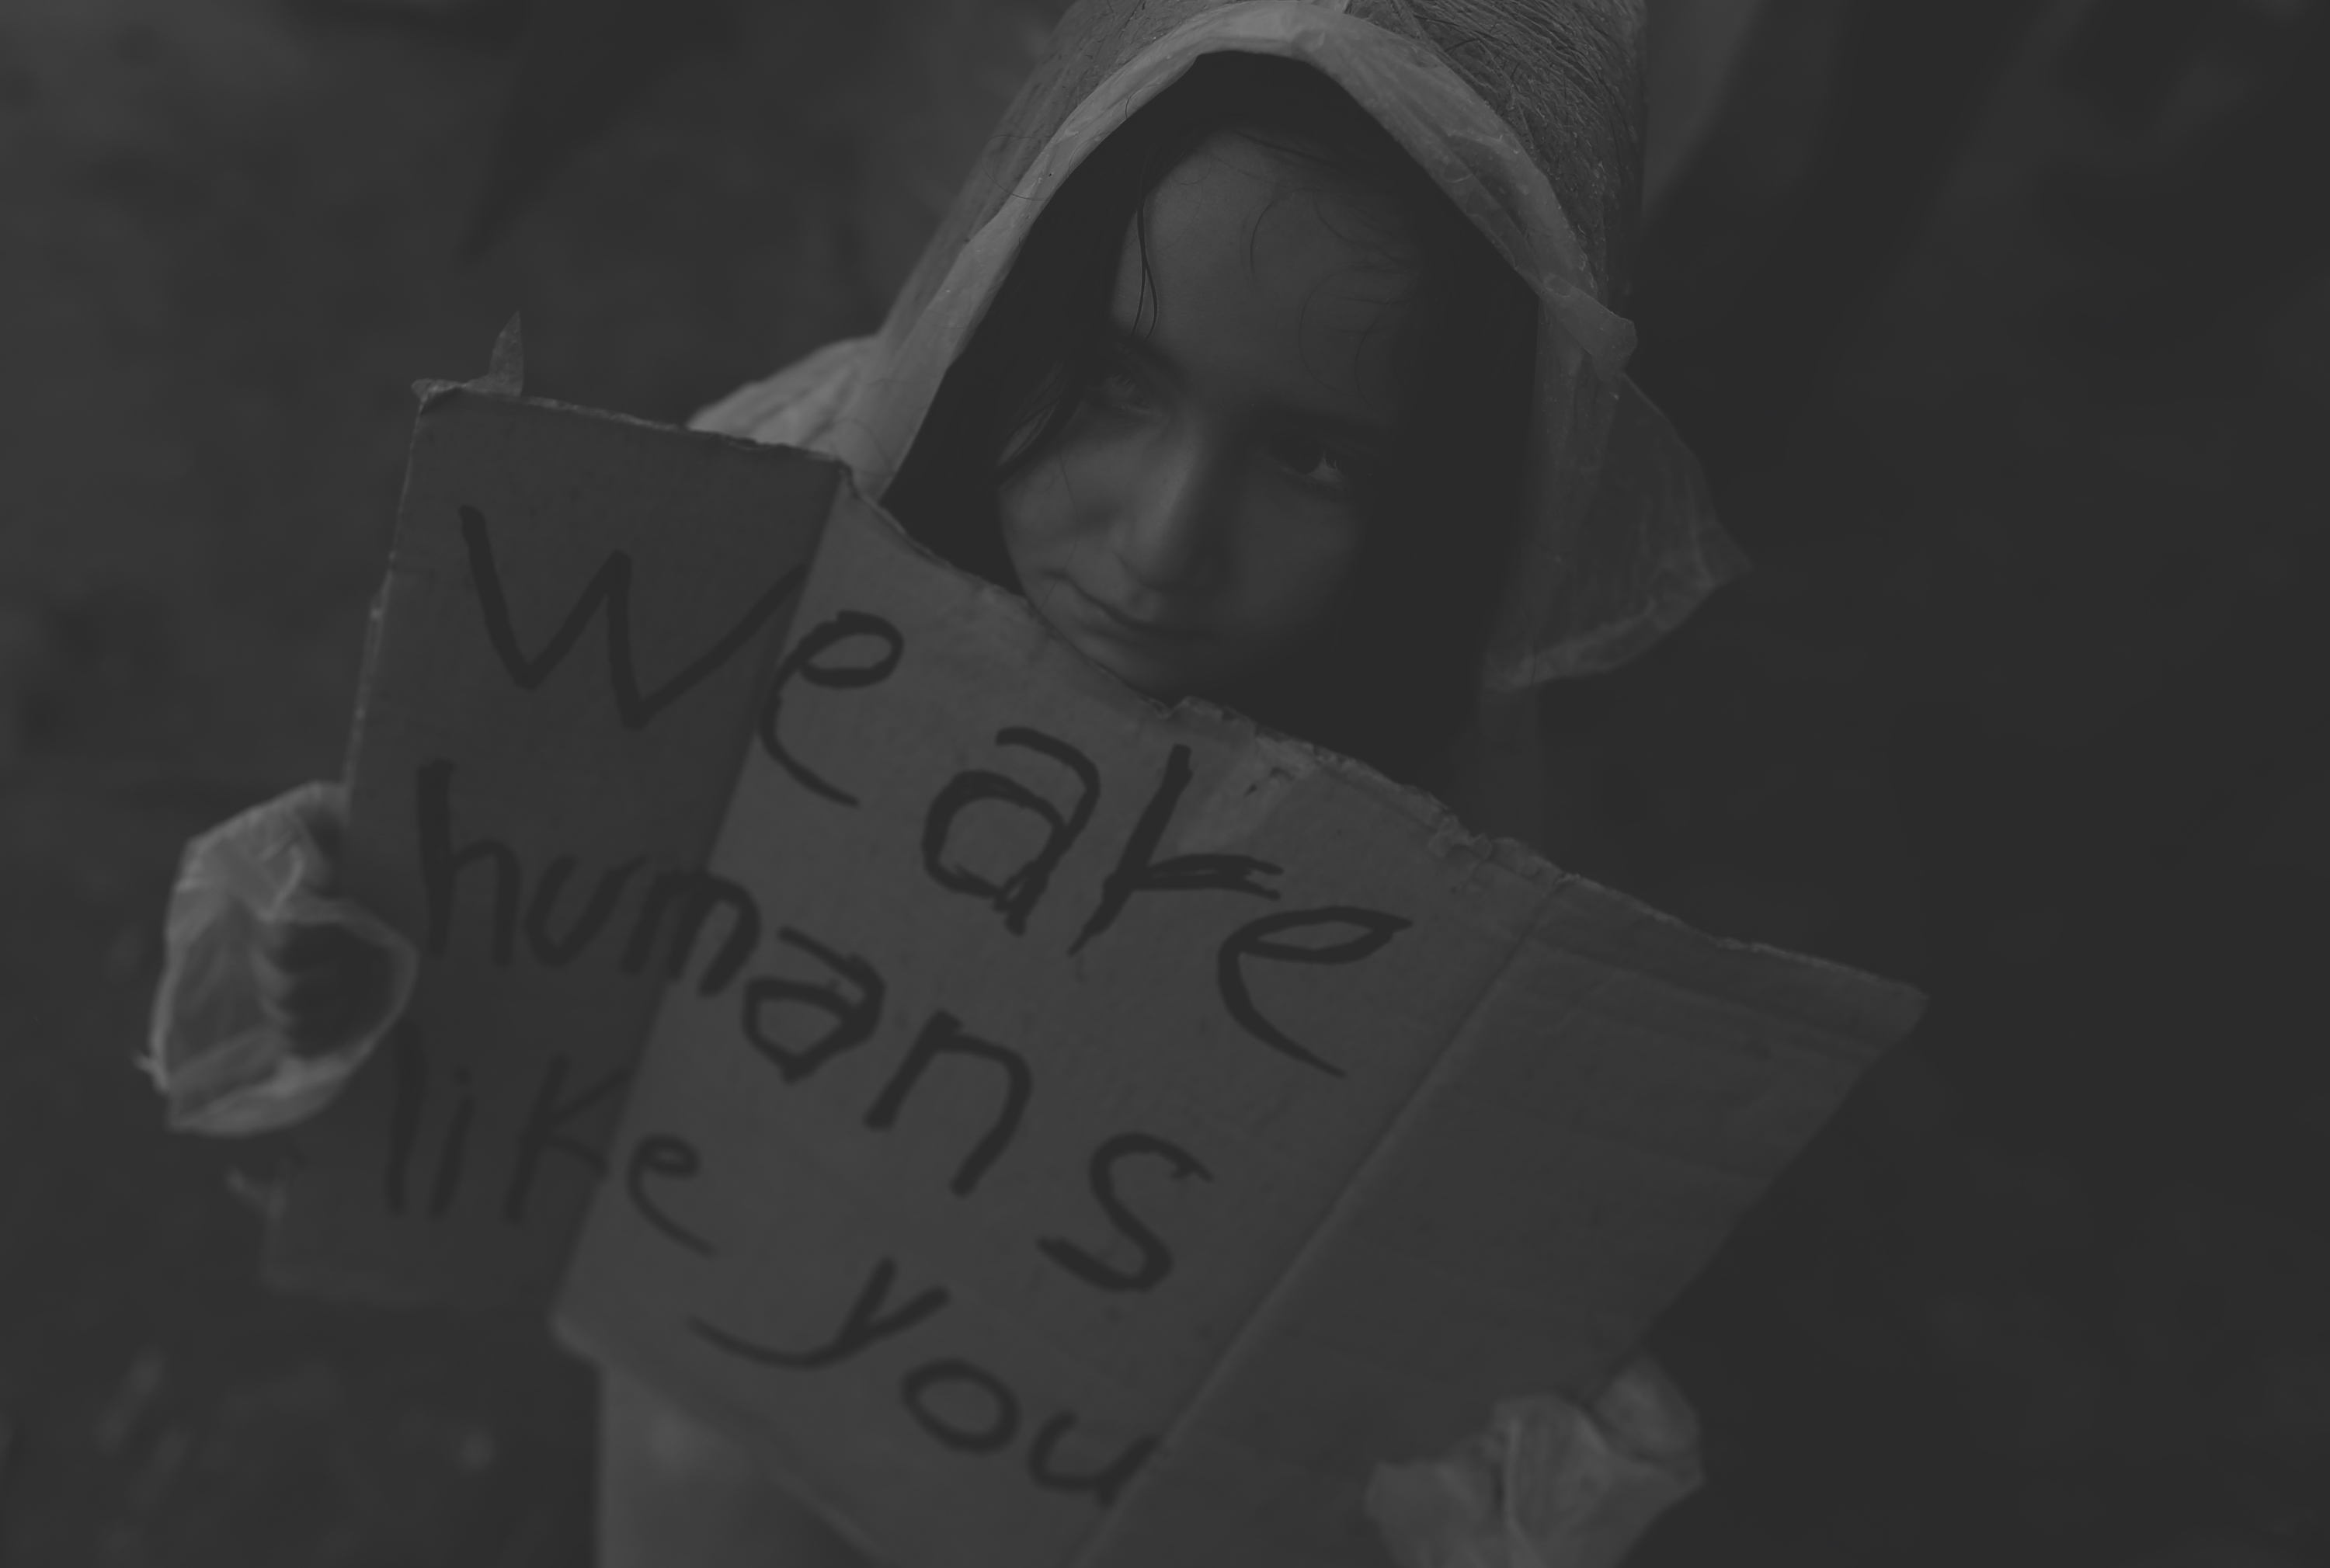 We are
humans
like you